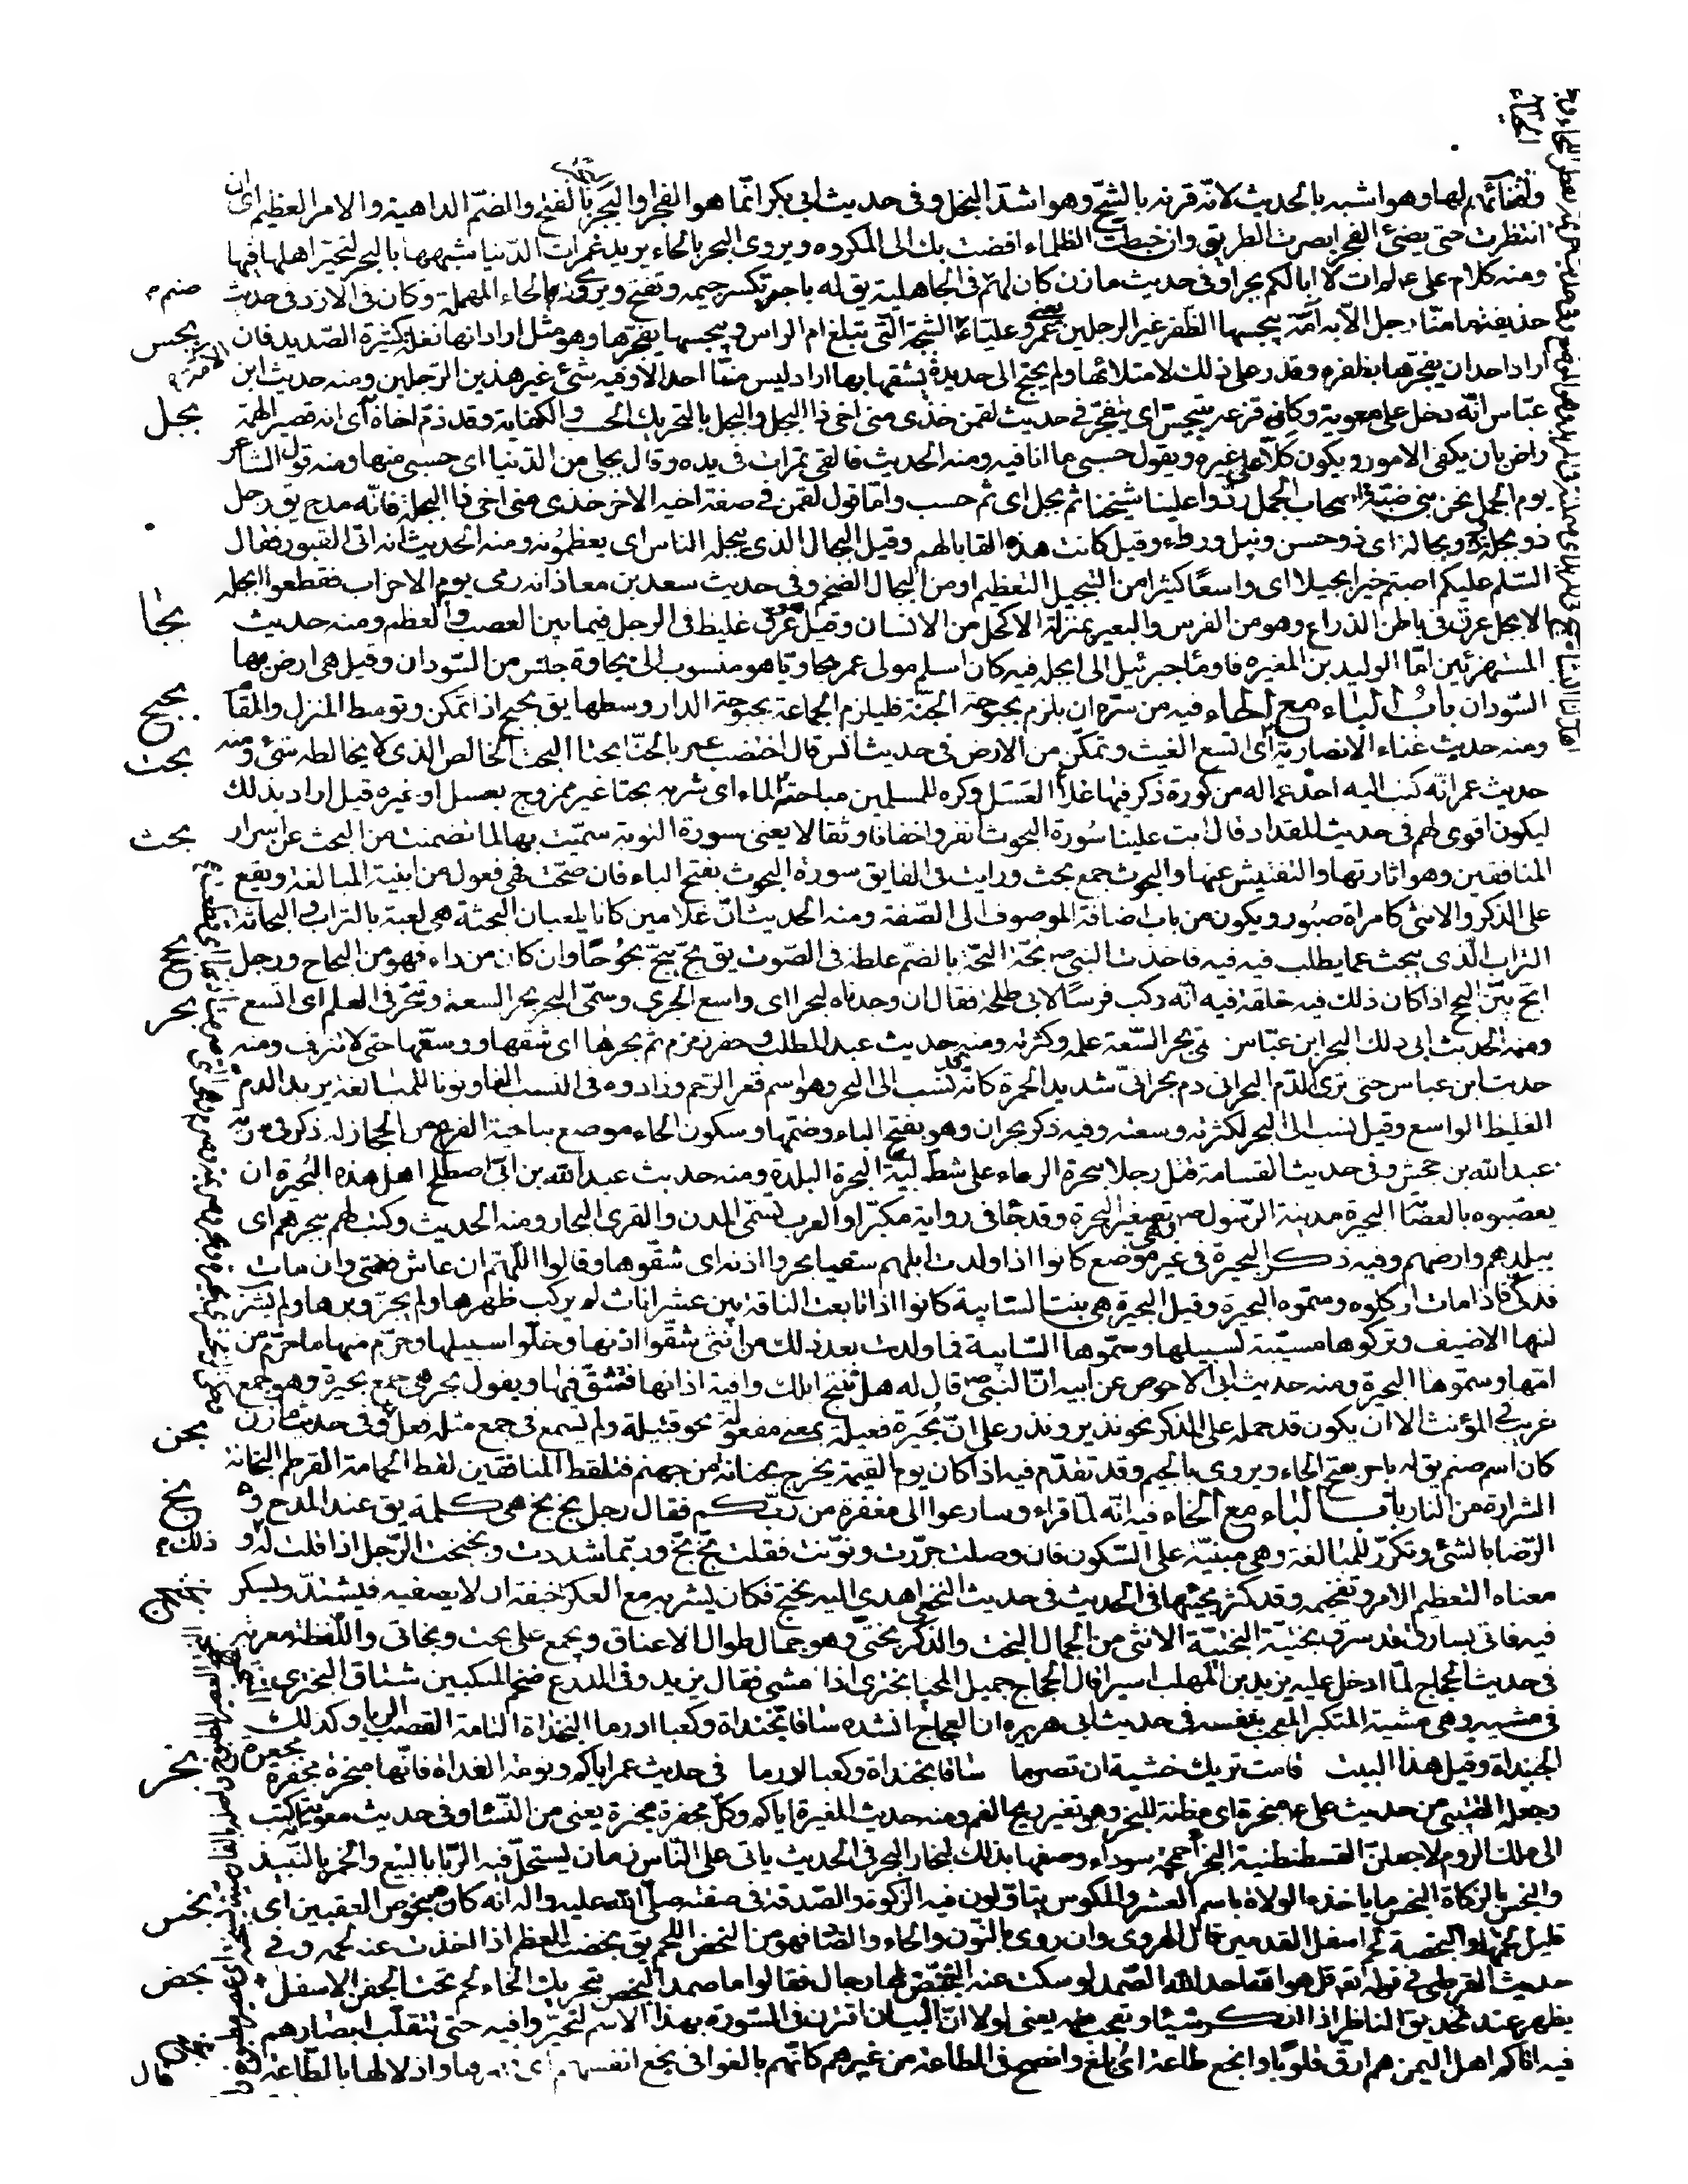 ولفخائم لها وهو اشبه بالحديث لانّه قرنه بالشّح وهو اشدّ البخل وفى حديث ابى بكر انّما هو الفجر او البجر بالفتح والضّم الداهية والامر العظيم اى ان
انتظرت حتى يضئ الفجر ابصرت الطريق وان خبطت الظلماء افضت بك الى المكروه ويروى البحر بالحاء يريد غمرات الدّنيا شبهها بالبحر لتحيّر اهلها فيها
ومنه كلام على ع لم ات لا ابا لكم بجرا وفى حديث مازن كان لهم صنم فى الجاهلية يق له باجر تكسر جيمه وتفتح ويروى بالحاء المهملة وكان فى الازد فى حديث
حذيفة ما منّا رجل الّا به امّة يبجسها الظفر غير الرجلين يعنى عمر وعليّا الآمّة الشجّة التى تبلغ ام الراس ويبجسها يفجرها وهو مثل اراد انها نغلة كثيرة الصّديد فان
اراد احد ان يفجّرها بظفره وقدر على ذلك لامتلائها ولم يحتج الى حديدة يشقها بها اراد ليس منّا احد الا وفيه شئ غير هذين الرّجلين ومنه حديث ابن
عبّاس انّه دخل على معوية وكان قزعه يتبجّس اى يتفجّر فى حديث لقمن خذى منى اخى ذا البجل والبجل بالتحريك الحسب والكفاية وقد ذمّ اخاه اى انه قصير الهمّة
راض بان يكفى الامور ويكون كلّا على غيره ويقول حسبى ما انا فيه ومنه الحديث فالقى تمرات فى يده وقال بجلى من الدّنيا اى حسبى منها ومنه قول الشاعر
يوم الجمل نحن بنى ضبّة اصحاب الجمل ردّوا علينا شيخنا ثم بجل اى ثم حسب وامّا قول لقمن فى صفة اخيه الاخر خذى منى اخى ذا البجلة فانّه مدح يق رجل
ذو بجلة وبجالة اى ذو حسن ونبل ورواء وقيل كانت هذه القابا لهم وقيل البجال الذى يبجله الناس اى يعظمونه ومنه الحديث انه اتى القبور فقال
السّلم عليكم اصبتم خيرا بجيلا اى واسعًا كثيرا من التبجيل التعظيم او من البجال الضخم وفى حديث سعد بن معاذ انه رمى يوم الاحزاب فقطعوا ابجله
الابجل عرق فى باطن الذراع وهو من الفرس والبعير بمنزلة الاكحل من الانسان وقيل هو عرق غليظ فى الرجل فيما بين العصب والعظم ومنه حديث
المستهزئين امّا الوليد بن المغيره فاومأ جبرئيل الى ابجله فيه كان اسلم مولى عمر بجاويّا هو منسوب الى بجاوة جنس من السّودان وقيل هى ارض بها
السّودان باب الباء مع الحاء فيه من سرّه ان يلزم بحبوحة الجنّة فليلزم الجماعة بحبوحة الدار وسطها يق بحبح اذا تمكن وتوسط المنزل والمقام
ومنه حديث غناء الانصاريّة اى اتسع الغيث وتمكّن من الارض فى حديث انس قال اختضب عمر بالحنّا بحتا البحت الخالص الذى لا يخالطه شئ ومنه
حديث عمر انّه كتب اليه احد عماله من كورة ذكر فيها غلاء العسل وكره للمسلمين مباحتة الماء اى شربه بحتا غير ممزوج بعسل او غيره قيل اراد بذلك
ليكون اقوى لهم فى حديث المقداد قال ابت علينا سورة البحوث انفروا خفافا وثقالا يعنى سورة التوبة سمّيت بها لما تضمنت من البحث عن اسرار
المنافقين وهو اثارتها والتفتيش عنها والبحوث جمع بحث ورايت فى الفايق سورة البحوث بفتح الباء فان صحّت فهى فعول من ابنية المبالغة ويقع
على الذكر والانثى كامراة صبور ويكون من باب اضافة الموصوف الى الصّفة ومنه الحديث انّ غلامين كانا يلعبان البحثة هى لعبة بالتراب والبحاثة
التراب الّذى يبحث عما يطلب فيه فيه فاخذت النبى ص بحّة البحّة بالضّم غلظة فى الصّوت يق بحّ يبحّ بحوحًا وان كان من داء فهو من البحاح ورجل
ابحّ بيّن البحح اذا كان ذلك فيه خلقة فيه انّه ركب فرسًا لابى طلحة فقال ان وجدناه لبحرا اى واسع الجرى وسمّى البحر بحر السعة وتبحّر فى العلم اى اتسع
ومنه الحديث ابى ذلك البحر ابن عبّاس سمى بحر السّعة علمه وكثرته ومنه حديث عبد المطلب وحفر زمزم ثم بحرها اى شقها ووسّعها حتى لا تنزف ومنه
حديث ابن عباس حتى ترى الدّم البحرانى دم بحرانىّ شديد الحمرة كانّه نسب الى البحر وهو اسم قعر الرّحم وزادوه فى النسب الفا ونونا للمبالغة يريد الدم
الغليظ الواسع وقيل نسب الى البحر لكثرته وسعته وفيه ذكر بحران وهو بفتح الباء وضمّها وسكون الحاء موضع بناحية الفرع من الحجاز له ذكر فى سرية
عبد الله بن جحش وفى حديث القسامة قتل رجلا ببحرة الرعاء على شطّ ليّة البحرة البلدة ومنه حديث عبد الله بن ابىّ اصطلح اهل هذه البحيرة ان
يعصّبوه بالعصابة البحيرة مدينة الرّسول ص وهى تصغير البحرة وقد جا فى رواية مكبّرا والعرب تسمّى المدن والقرى البحار ومنه الحديث وكتب لهم ببحرهم اى
ببلدهم وارضهم وفيه ذكر البحيرة فى غير موضع كانوا اذا ولدت ابلهم سقبا بحروا اذنه اى شقّوها وقالوا اللّهمّ ان عاش ففتى وان مات
فذكى فاذا مات اكلوه وسمّوه البحيرة وقيل البحيرة هى بنت السّايبة كانوا اذا تابعت الناقة بين عشر اناث لم يركب ظهرها ولم يجزّ وبرها ولم يشرب
لبنها الا ضيف وتركوها مسيّبة لسبيلها وسمّوها السّايبة فما ولدت بعد ذلك من انثى شقّوا اذنها وخلّوا سبيلها وحرّم منها ما حرّم من
امّها وسمّوها البحيرة ومنه حديث ابى الاحوص عن ابيه انّ النبى ص قال له هل تنتج ابلك وافية اذانها فتشقّ فيها ويقول بحر هى جمع بحيرة وهو جمع
غريب فى المؤنث الا ان يكون قد حمله على المذكر نحو نذير ونذر على انّ بحيرة فعيلة بمعنى مفعولة نحو قتيلة ولم يسمع فى جمع مثله فعل وفى حديث مازن
كان اسم صنم يق له باحر بفتح الحاء ويروى بالجيم وقد تقدّم فيه اذا كان يوم القيمة يخرج بحنانة من جهنم فتلقط المنافقين لقط الحمامة القرطم البحنانة
الشرارة من النار باب الباء مع الخاء فيه انّه لمّا قراء وسارعوا الى مغفرة من ربّكم فقال رجل بخ بخ هى كلمة يق عند المدح و
الرّضا بالشئ وتكرّر للمبالغة وهى مبنيّة على السّكون فان وصلت جرّرت ونوّنت فقلت بخّ بخّ وربّما شددت وبخبخت الرّجل اذا قلت له ذلك و
معناه التعظيم الامر وتفخيمه وقد كثر مجيئها فى الحديث فى حديث النخعى اهدى اليه بختج فكان يشربه مع العكر خيفة ان لا يصفيه فيشتدّ ويسكر
فيه فاتى بسارق قد سرق بختيّة البختيّة الانثى من الجمال البخت والذكر بختى وهو جمال طوال الاعناق ويجمع على بخت وبخاتى واللّفظة معربة
فى حديث الحجاج لمّا ادخل عليه يزيد بن المهلب اسيرا قال الحجاج جميل المحيا بخترى اذا مشى فقال يزيد وفى الدرع ضخم المنكبين شناق البخترى
فى مشيه وهى مشية المتكبر المعجب بنفسه فى حديث ابى هريره ان العجاج انشده ساقا بخنداة وكعبا ادرما البخنداة التامة القصب الريا وكذلك
الخبنداة وقيل هذا البيت قامت تريك خشية ان تصرما ساقا بخنداة وكعبا ادرما فى حديث عمر اياكم ونومة الغداة فانّها مبخرة مجفرة
وجعله القتيبى من حديث على ع مبخرة اى مظنة للبخر وهو تغير ريح الفم ومنه حديث المغيرة اياكم وكلّ مجفرة مبخرة يعنى من النّساء وفى حديث معوية انّه كتب
الى ملك الروم لاجعلنّ القسطنطنية البخراء حممة سوداء وصفها بذلك لبخار البحر فى الحديث ياتى على النّاس زمان يستحلّ فيه الرّبا بالبيع والخمر بالنّبيذ
والبخس بالزكاة البخس ما ياخذه الولاة باسم العشر والمكوس يتاوّلون فيه الزكوة والصّدقة فى صفته صلّى الله عليه واله انه كان مبخوص العقبين اى
قليل لحمهما والبخصة لحم اسفل القدمين قال الهروى وان روى بالنّون والحاء والضّا فهو من النحض اللحم يق نحضت العظم اذا اخذت عنه لحمه وفى
حديث القرظى فى قوله تع قل هو الله احد الله الصّمد لو سكت عنه لتبخّص لها رجال فقالوا ما صمد البخص بتحريك الخاء لحم تحت الجفن الاسفل
يظهر عند تحديق الناظر اذا انكر شيئا وتعجب منه يعنى لولا انّ البيان اقترن فى السّورة بهذا الاسم لتحيّروا فيه حتى تنقلب ابصارهم
فيه اتاكم اهل اليمن هم ارقّ قلوبًا وابخع طاعة اى ابلغ وانصح فى الطاعة من غيرهم كانّهم بالغوا فى بخع انفسهم اى قهرها واذلالها بالطّاعة
بجس
بجل
بجا
بحبح
بحت
بحث
بحح
بحر
بحن
بخ
بختج
بخر
بخس
بخص
قال